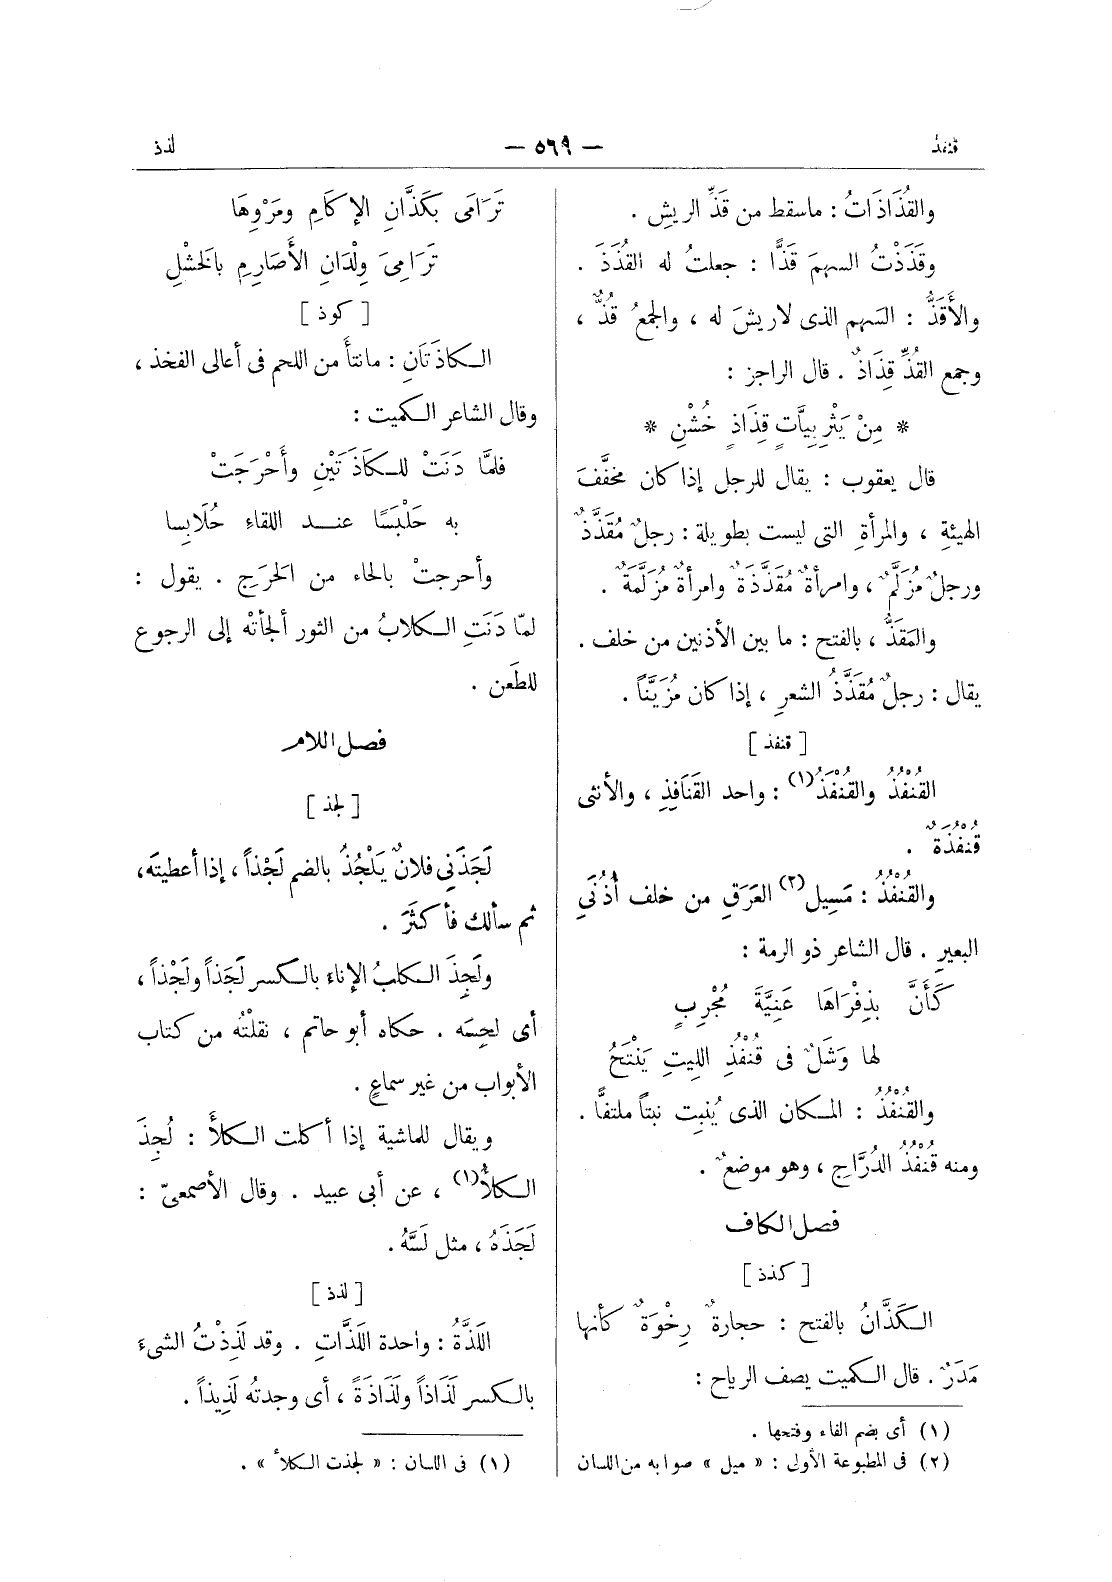 قنفذ
— ٥٦٩ —
لذذ
والقُذَاذَاتُ : ماسقط من قَذِّ الريشِ .
وقَذَذْتُ السهمَ قَذًّا : جعلتُ له القُذَذَ .
والأَقَذُّ : السَهم الذى لاريشَ له ، والجمعُ قُذٌّ ،
وجمع القُذِّ قِذَاذٌ . قال الراجز :
* مِنْ يَثْرِبِيَّاتٍ قِذَاذٍ خُشْنِ *
قال يعقوب : يقال للرجل إذا كان مخفَّفَ
الهيئةِ ، والمرأةِ التى ليست بطويلة : رجلٌ مُقَذَّذٌ
ورجلٌ مُزَلَّمٌ ، وامرأةٌ مُقَذَّذَةٌ وامرأةٌ مُزَلَّمَةٌ .
والمَقَذُّ ، بالفتح : ما بين الأذنين من خلف .
يقال : رجلٌ مُقَذَّذُ الشعرِ ، إذا كان مُزَيَّنًا .
[ قنفذ ]
القُنْفُذُ والقُنْفَذُ(١) : واحد القَنَافِذِ ، والأنثى
قُنْفُذَةٌ .
والقُنْفُذُ : مَسِيل(٢) العَرَقِ من خلف أُذُنَيِ
البعيرِ . قال الشاعر ذو الرمة :
كَأَنَّ بِذِفْرَاهَا عَنِيَّةَ مُجْرِبٍ
لها وَشَلٌ فى قُنْفُذِ اللِيتِ يَنْتَحُ
والقُنْفُذُ : المكان الذى يُنبِت نبتاً ملتفًّا .
ومنه قُنْفُذُ الدُرَّاجِ ، وهو موضعٌ .
فصل الكاف
[ كذذ ]
الكَذَّانُ بالفتح : حجارةٌ رِخْوَةٌ كأنها
مَدَرٌ . قال الكميت يصف الرياح :
(١) أى بضم الفاء وفتحها .
(٢) فى المطبوعة الأولى : « ميل » صوابه من اللسان
تَرَامَى بكَذَّانِ الإكَامِ ومَرْوِهَا
تَرَامِىَ وِلْدَانِ الأَصَارِمِ بالخَشْلِ
[ كوذ ]
الكاذَتَانِ : مانتأَ من اللحم فى أعالى الفخذ ،
وقال الشاعر الكميت :
فلمَّا دَنَتْ للكَاذَتَيْنِ وأَحْرَجَتْ
به حَلْبَسًا عند اللقاءِ حُلَابِسا
وأحرجتْ بالحاء من الحَرَجِ . يقول :
لمّا دَنَتِ الكلابُ من الثور ألجأتْه إلى الرجوع
للطَعن .
فصل اللام
[ لجذ ]
لَجَذَنِي فلانٌ يَلْجُذُ بالضم لَجْذاً ، إذا أعطيتَه،
ثم سألك فأكثَرَ .
ولَجِذَ الكلبُ الإناءَ بالكسر لَجَذاً ولَجْذاً ،
أى لحِسَه . حكاه أبو حاتم ، نقلْتُه من كتاب
الأبواب من غير سماعٍ .
ويقال للماشية إذا أكلت الكلأَ : لُجِذَ
الكلأُ(١) ، عن أبى عبيد . وقال الأصمعىّ :
لَجَذَهُ ، مثل لَسَّهُ .
[ لذذ ]
اللَذَّةُ : واحدة اللَذَّاتِ . وقد لَذِذْتُ الشىءَ
بالكسر لَذَاذاً ولَذَاذَةً ، أى وجدتهُ لَذِيذاً .
(١) فى اللسان : « لجذت الكلأ » .